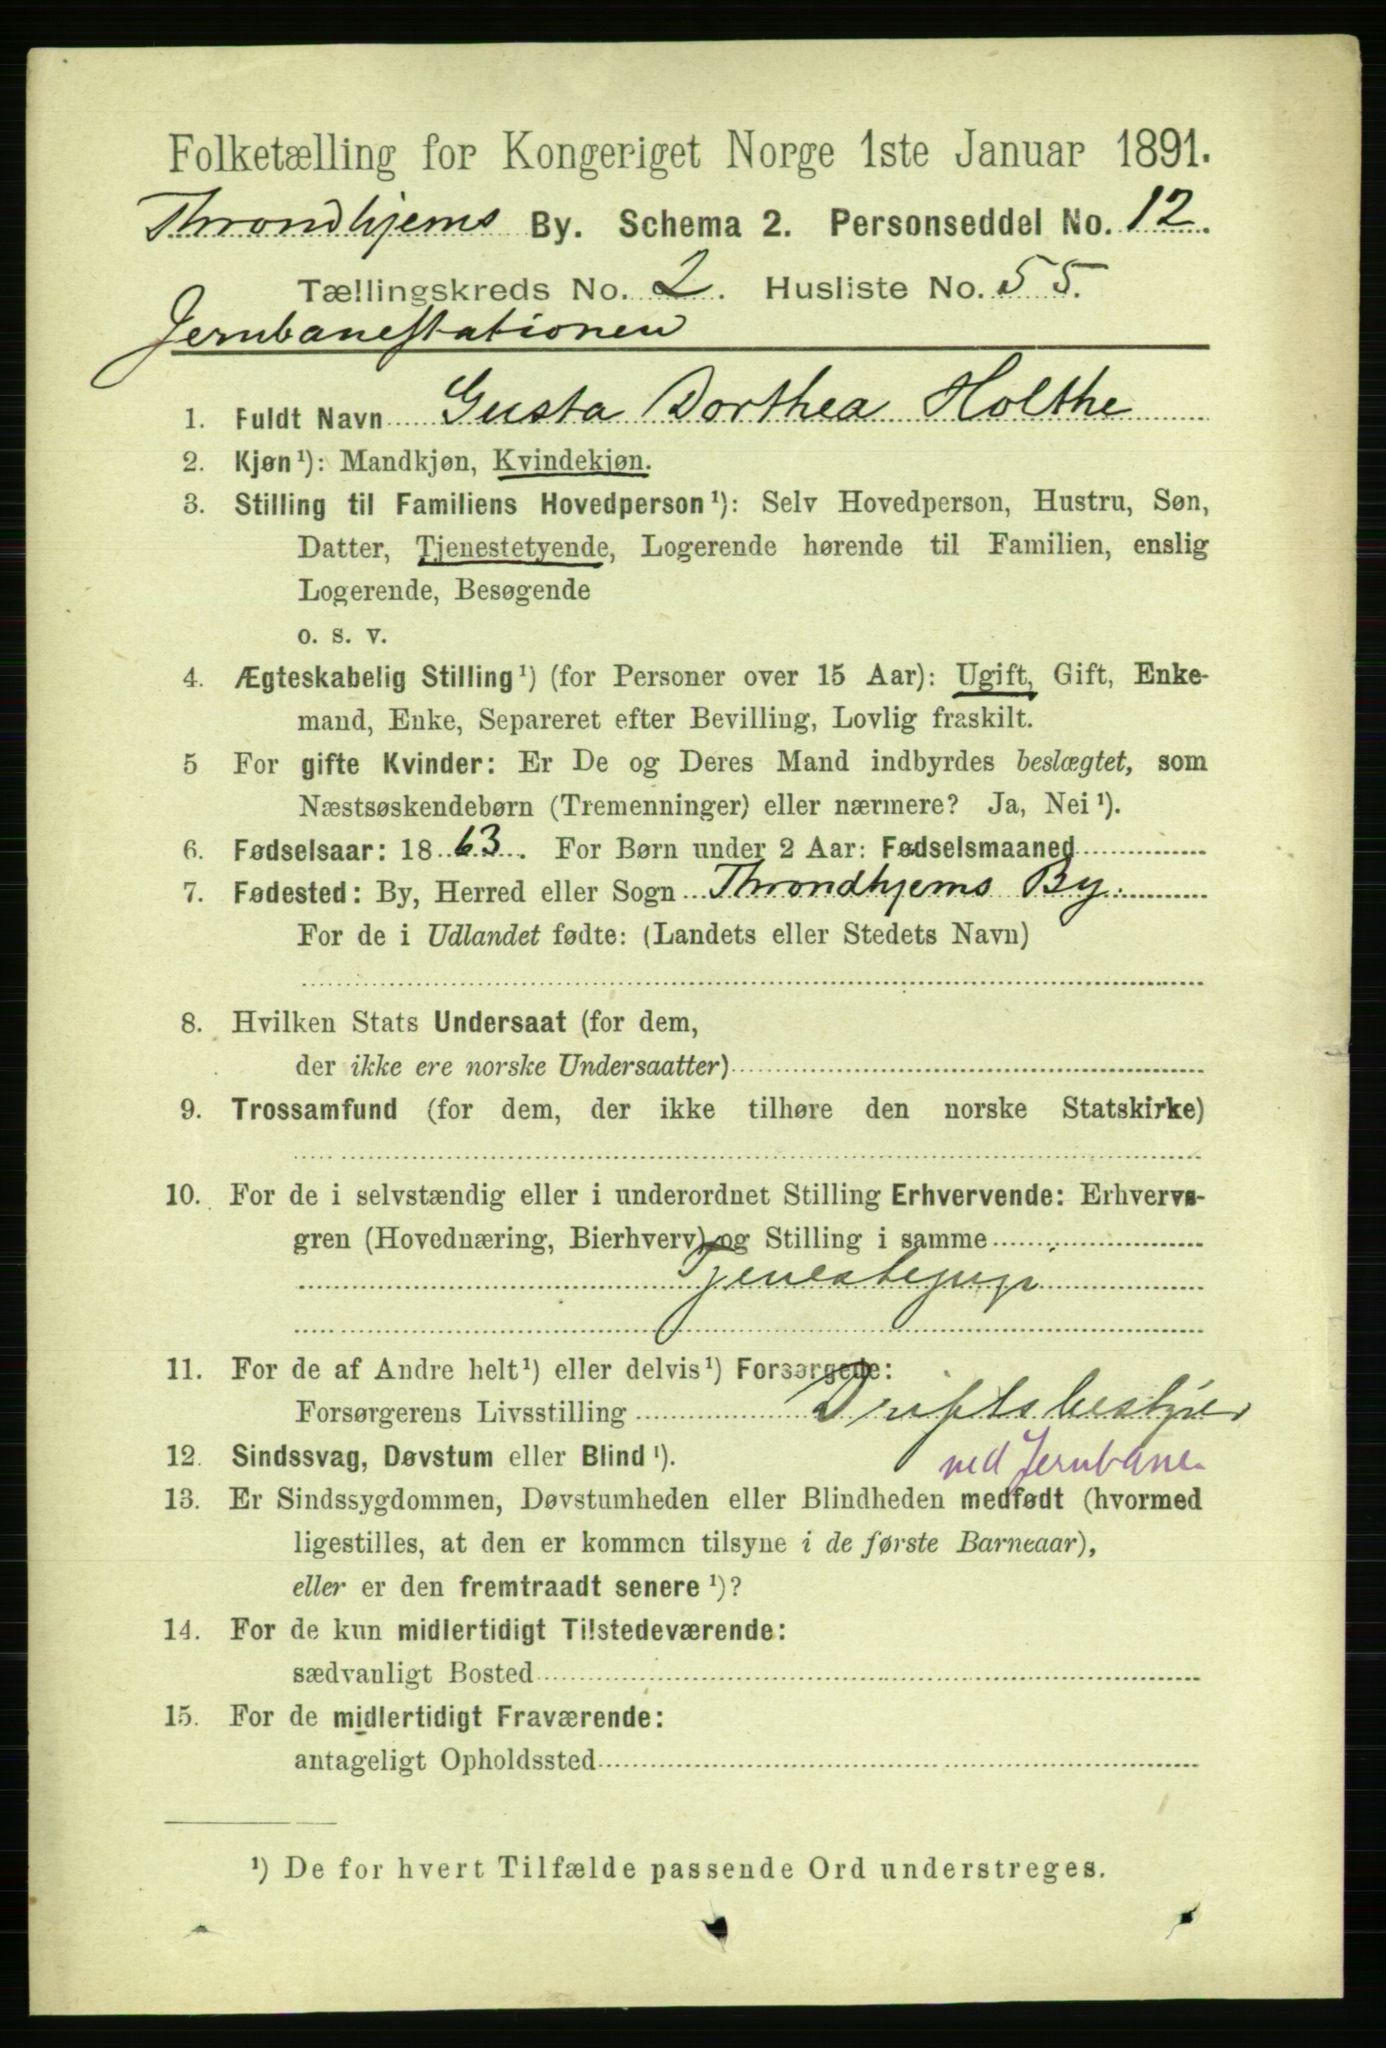 Folketælling for Kongeriget Norge 1ste Januar 1891.
Throndhjems By. Schema 2. Personseddel No. 12.
Tællingskreds No. 2. Husliste No. 55.
Jernbanestationen
1. Fuldt Navn Gusta Dorthea Holthe
2. Kjøn¹): Mandkjøn, Kvindekjøn.
3. Stilling til Familiens Hovedperson¹): Selv Hovedperson, Hustru, Søn,
Datter, Tjenestetyende, Logerende hørende til Familien, enslig
Logerende, Besøgende
o. s. v.
4. Ægteskabelig Stilling¹) (for Personer over 15 Aar): Ugift, Gift, Enke-
mand, Enke, Separeret efter Bevilling, Lovlig fraskilt.
5 For gifte Kvinder: Er De og Deres Mand indbyrdes beslægtet, som
Næstsøskendebørn (Tremenninger) eller nærmere? Ja, Nei¹).
6. Fødselsaar: 1863. For Børn under 2 Aar: Fødselsmaaned
7. Fødested: By, Herred eller Sogn Throndhjems By.
For de i Udlandet fødte: (Landets eller Stedets Navn)
8. Hvilken Stats Undersaat (for dem,
der ikke ere norske Undersaatter)
9. Trossamfund (for dem, der ikke tilhøre den norske Statskirke)
10. For de i selvstændig eller i underordnet Stilling Erhvervende: Erhvervs-
gren (Hovednæring, Bierhverv) og Stilling i samme
Tjenestepige
11. For de af Andre helt¹) eller delvis¹) Forsørgede:
Forsørgerens Livsstilling Driftsbestyrer
ved Jernbane.
12. Sindssvag, Døvstum eller Blind¹).
13. Er Sindssygdommen, Døvstumheden eller Blindheden medfødt (hvormed
ligestilles, at den er kommen tilsyne i de første Barneaar),
eller er den fremtraadt senere¹)?
14. For de kun midlertidigt Tilstedeværende:
sædvanligt Bosted
15. For de midlertidigt Fraværende:
antageligt Opholdssted
¹) De for hvert Tilfælde passende Ord understreges.